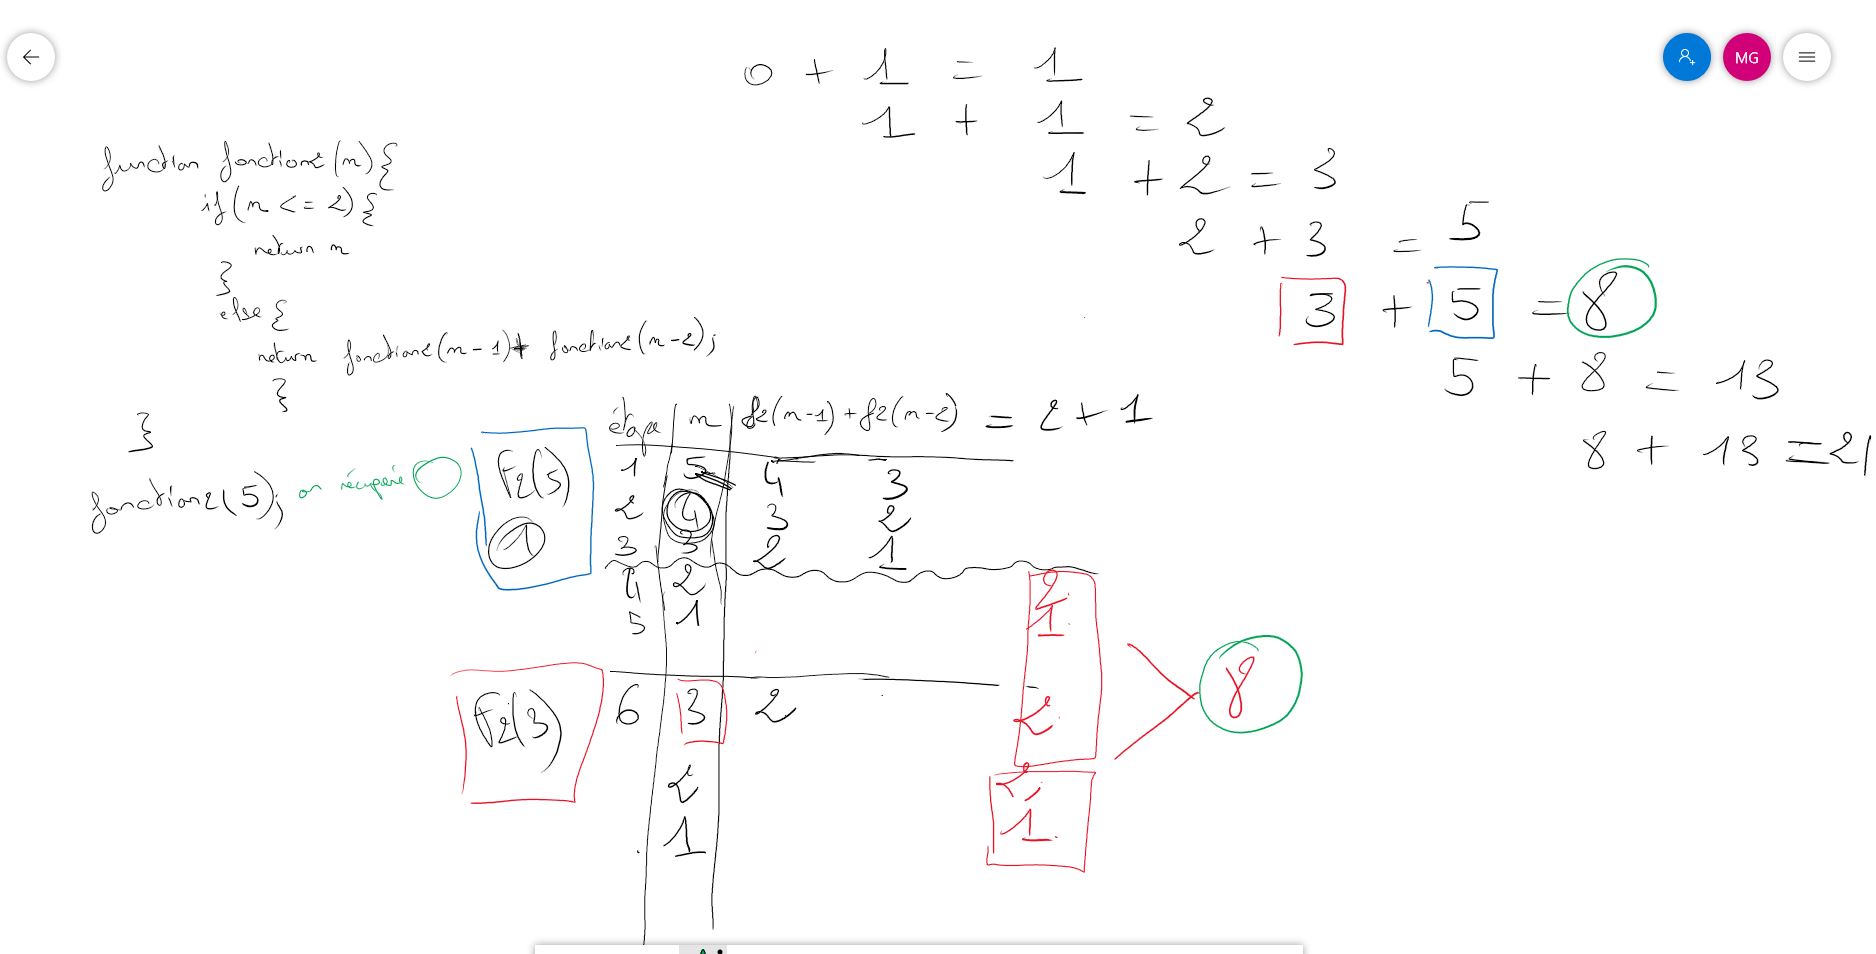 MG
0 + 1 = 1
1 + 1 = 2
1 + 2 = 3
2 + 3 = 5
3 + 5 = 8
5 + 8 = 13
8 + 13 = 21
function fonction2(n){
if(n <= 2){
return n
}
else{
return fonction2(n-1)+ fonction2(n-2);
}
}
fonction2(5); on récupère
F2(5)
1
étape n f2(n-1)+f2(n-2) = 2 + 1
1 5 4 3
2 4 3 2
3 3 2 1
4 2
5 1
2
1
F2(3)
6 3 2
2
8
2
2
1
1